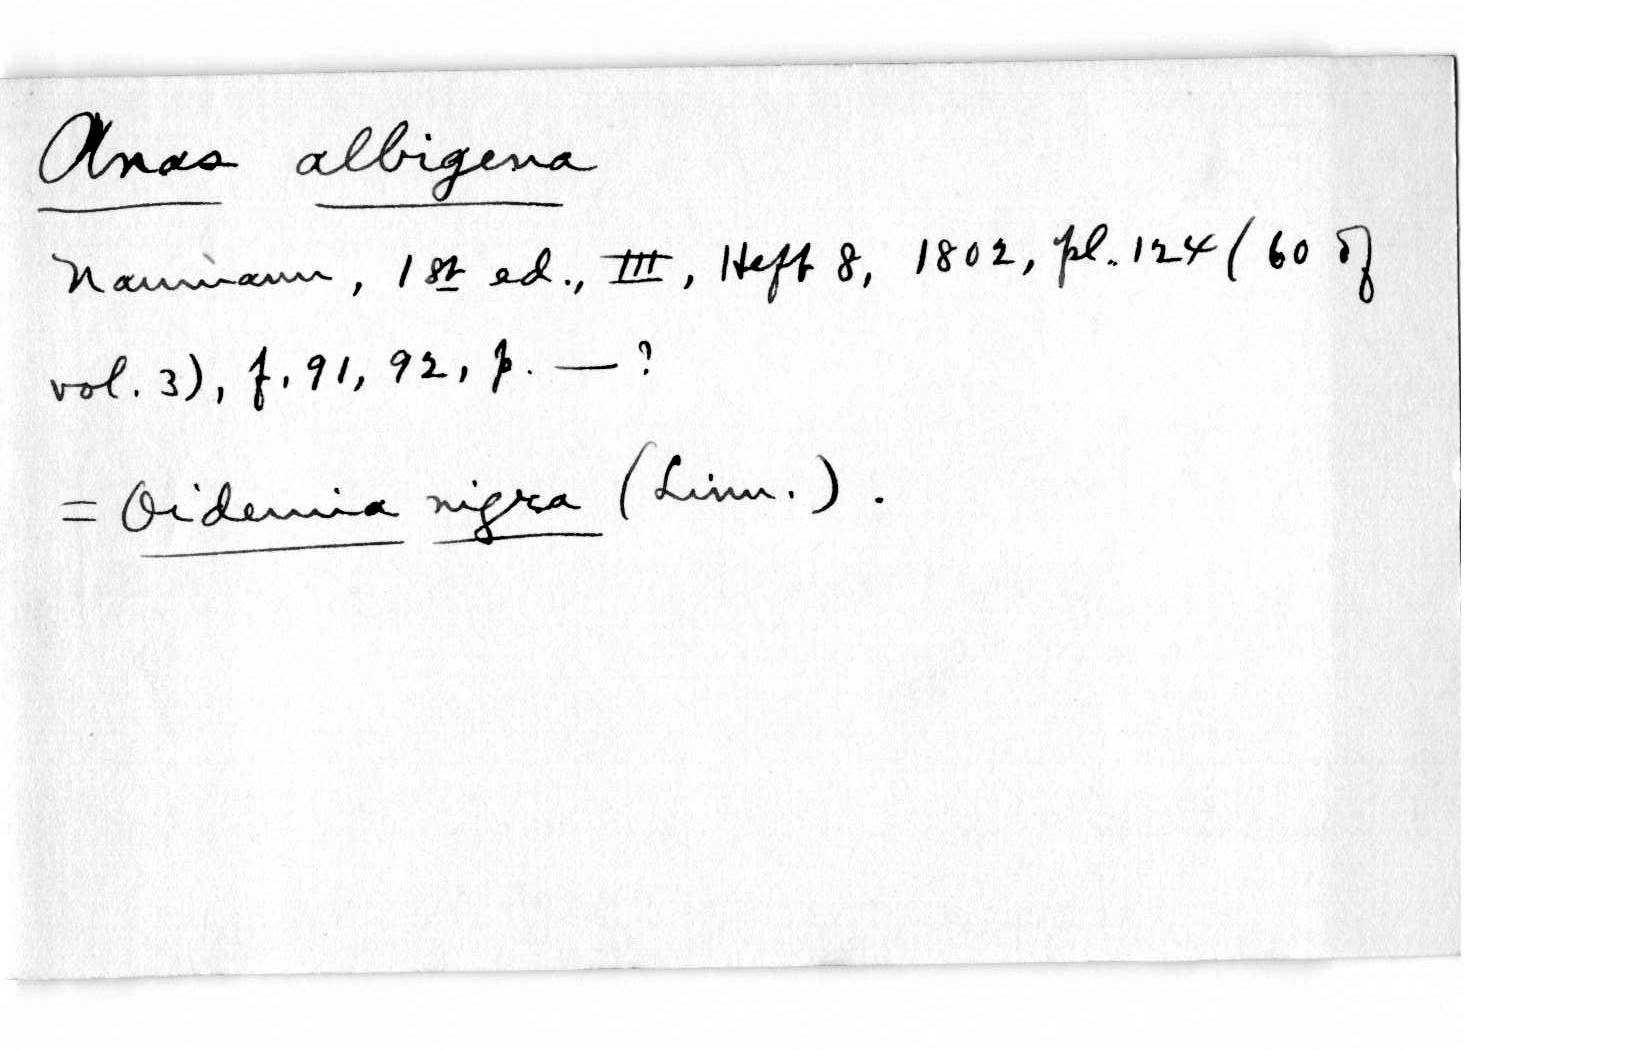 Anas albigena
Naumann, 1st ed., III, Heft 8, 1802, pl. 124 (60 of
vol. 3), f. 91, 92, p. — ?
= Oidemia nigra (Linn.).